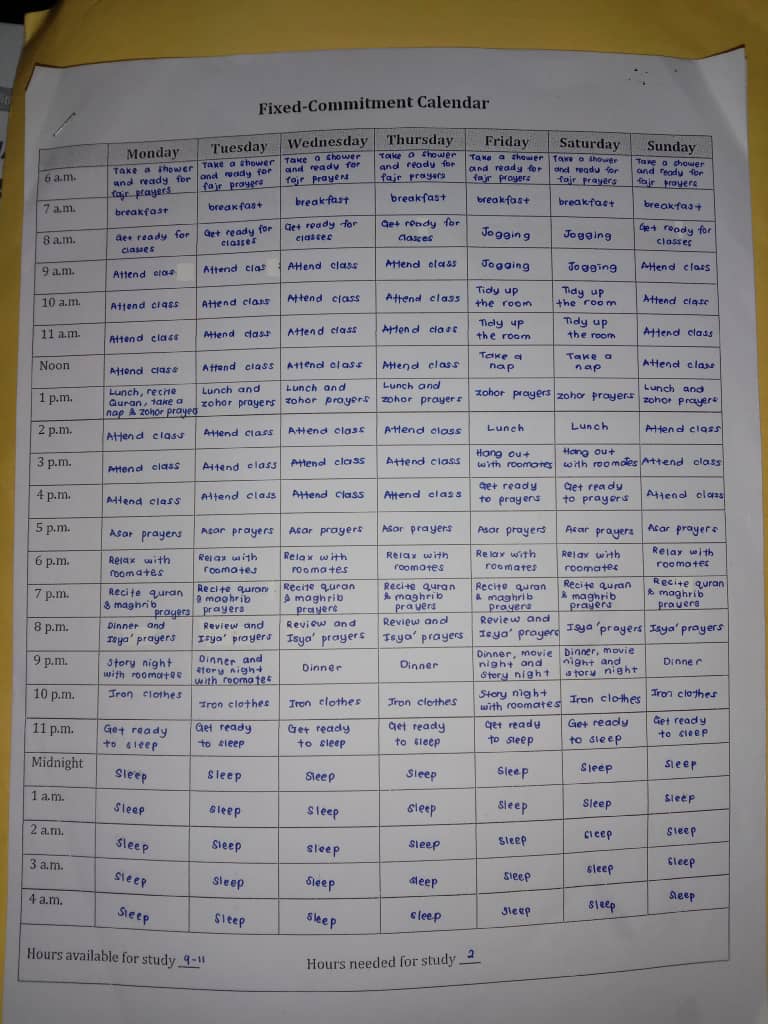 Fixed-Commitment Calendar
Monday Tuesday Wednesday Thursday Friday Saturday Sunday
6 a.m. Take a shower and ready for fajr prayers Take a shower and ready for fajr prayers Take a shower and ready for fajr prayers Take a shower and ready for fajr prayers Take a shower and ready for fajr prayers Take a shower and ready for fajr prayers Take a shower and ready for fajr prayers
7 a.m. breakfast breakfast breakfast breakfast breakfast breakfast breakfast
8 a.m. Get ready for classes Get ready for classes Get ready for classes Get ready for classes Jogging Jogging Get ready for classes
9 a.m. Attend clas Attend clas Attend class Attend class Jogging Jogging Attend class
10 a.m. Attend class Attend class Attend class Attend class Tidy up the room Tidy up the room Attend class
11 a.m. Attend class Attend class Attend class Attend class Tidy up the room Tidy up the room Attend class
Noon Attend class Attend class Attend class Attend class Take a nap Take a nap Attend class
1 p.m. Lunch, recite Quran, take a nap & zohor prayers Lunch and zohor prayers Lunch and zohor prayers Lunch and zohor prayers zohor prayers zohor prayers Lunch and zohor prayers
2 p.m. Attend class Attend class Attend class Attend class Lunch Lunch Attend class
3 p.m. Attend class Attend class Attend class Attend class Hang out with roomates Hang out with roomates Attend class
4 p.m. Attend class Attend class Attend class Attend class Get ready to prayers Get ready to prayers Attend class
5 p.m. Asar prayers Asar prayers Asar prayers Asar prayers Asar prayers Asar prayers Asar prayers
6 p.m. Relax with roomates Relax with roomates Relax with roomates Relax with roomates Relax with roomates Relax with roomates Relax with roomates
7 p.m. Recite quran & maghrib prayers Recite quran & maghrib prayers Recite quran & maghrib prayers Recite quran & maghrib prayers Recite quran & maghrib prayers Recite quran & maghrib prayers Recite quran & maghrib prayers
8 p.m. Dinner and Isya' prayers Review and Isya' prayers Review and Isya' prayers Review and Isya' prayers Review and Isya' prayers Isya' prayers Isya' prayers
9 p.m. Story night with roomates Dinner and story night with roomates Dinner Dinner Dinner, movie night and story night Dinner, movie night and story night Dinner
10 p.m. Iron clothes Iron clothes Iron clothes Iron clothes Story night with roomates Iron clothes Iron clothes
11 p.m. Get ready to sleep Get ready to sleep Get ready to sleep Get ready to sleep Get ready to sleep Get ready to sleep Get ready to sleep
Midnight Sleep Sleep Sleep Sleep Sleep Sleep Sleep
1 a.m. Sleep Sleep Sleep Sleep Sleep Sleep Sleep
2 a.m. Sleep Sleep Sleep Sleep Sleep Sleep Sleep
3 a.m. Sleep Sleep Sleep Sleep Sleep Sleep Sleep
4 a.m. Sleep Sleep Sleep Sleep Sleep Sleep Sleep
Hours available for study 9-11 Hours needed for study 2